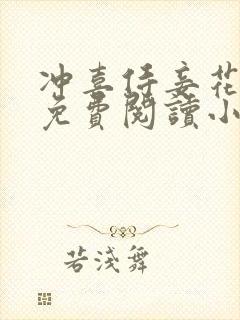 冲喜侍妾花
免費閱讀小
若淺舞